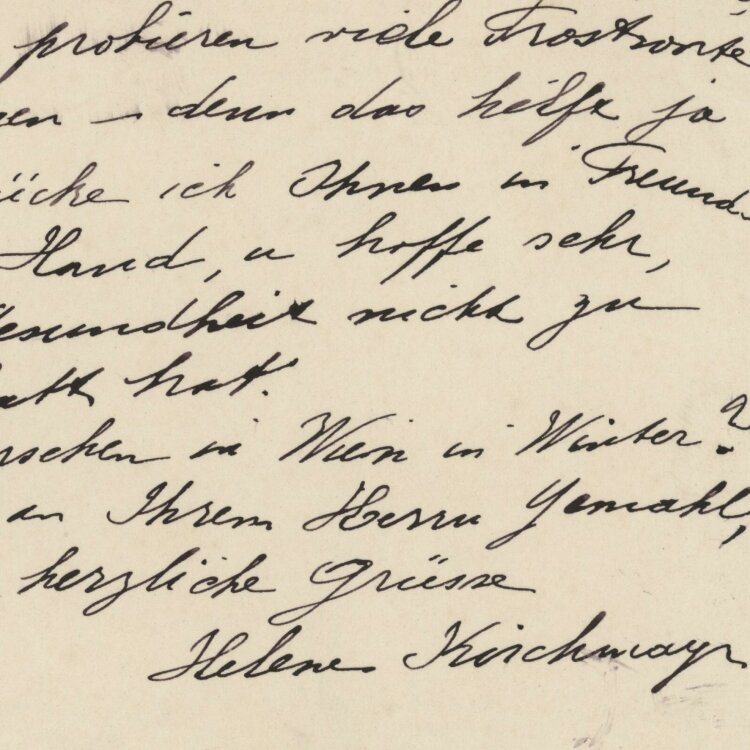 probieren viele Trostworte
en – denn das hilft ja
ücke ich Ihnen in Freund-
Hand, u hoffe sehr,
Gesundheit nicht zu
att hat.
rschen in Wien in Winter?
an Ihrem Herrn Gemahl,
herzliche Grüsse
Helene Kirchmayr